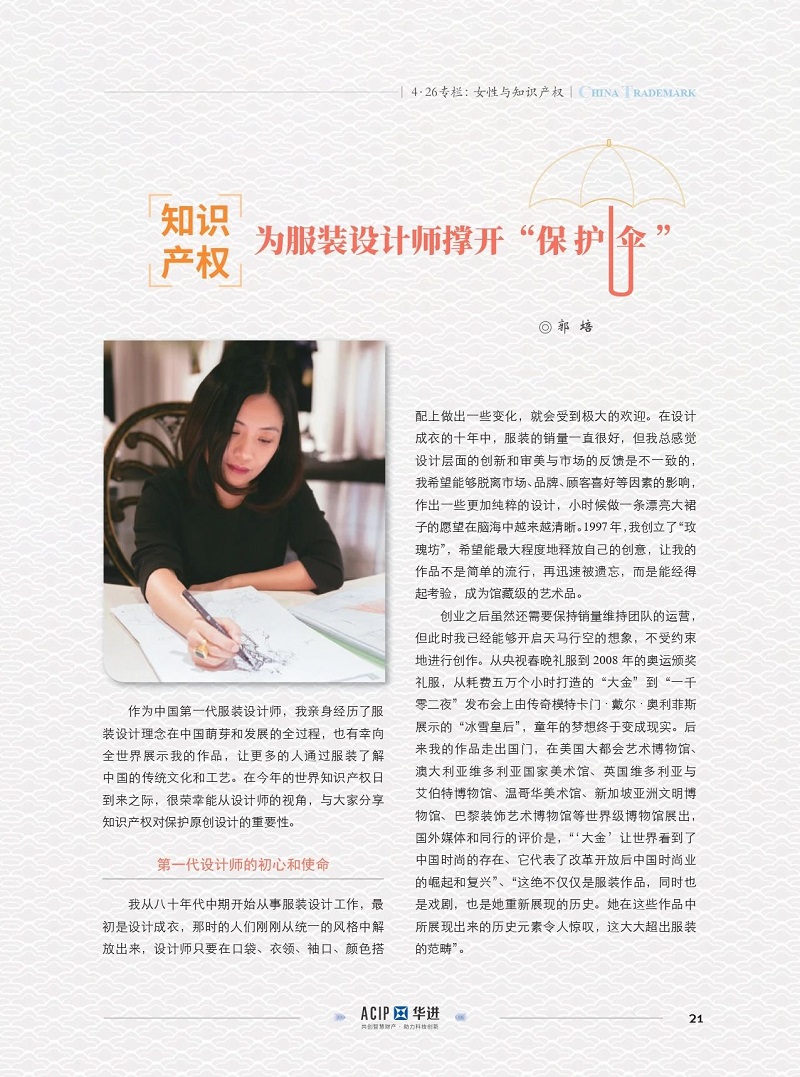 4·26专栏：女性与知识产权
CHINA TRADEMARK
知识
产权
为服装设计师撑开“保护伞”
◎ 郭 培
作为中国第一代服装设计师，我亲身经历了服
装设计理念在中国萌芽和发展的全过程，也有幸向
全世界展示我的作品，让更多的人通过服装了解
中国的传统文化和工艺。在今年的世界知识产权日
到来之际，很荣幸能从设计师的视角，与大家分享
知识产权对保护原创设计的重要性。
第一代设计师的初心和使命
我从八十年代中期开始从事服装设计工作，最
初是设计成衣，那时的人们刚刚从统一的风格中解
放出来，设计师只要在口袋、衣领、袖口、颜色搭
配上做出一些变化，就会受到极大的欢迎。在设计
成衣的十年中，服装的销量一直很好，但我总感觉
设计层面的创新和审美与市场的反馈是不一致的，
我希望能够脱离市场、品牌、顾客喜好等因素的影响，
作出一些更加纯粹的设计，小时候做一条漂亮大裙
子的愿望在脑海中越来越清晰。1997年，我创立了“玫
瑰坊”，希望能最大程度地释放自己的创意，让我的
作品不是简单的流行，再迅速被遗忘，而是能经得
起考验，成为馆藏级的艺术品。
创业之后虽然还需要保持销量维持团队的运营，
但此时我已经能够开启天马行空的想象，不受约束
地进行创作。从央视春晚礼服到 2008 年的奥运颁奖
礼服，从耗费五万个小时打造的“大金”到“一千
零二夜”发布会上由传奇模特卡门·戴尔·奥利菲斯
展示的“冰雪皇后”，童年的梦想终于变成现实。后
来我的作品走出国门，在美国大都会艺术博物馆、
澳大利亚维多利亚国家美术馆、英国维多利亚与
艾伯特博物馆、温哥华美术馆、新加坡亚洲文明博
物馆、巴黎装饰艺术博物馆等世界级博物馆展出，
国外媒体和同行的评价是，“‘大金’让世界看到了
中国时尚的存在、它代表了改革开放后中国时尚业
的崛起和复兴”、“这绝不仅仅是服装作品，同时也
是戏剧，也是她重新展现的历史。她在这些作品中
所展现出来的历史元素令人惊叹，这大大超出服装
的范畴”。
ACIP 华进
共创智慧财产·助力科技创新
21